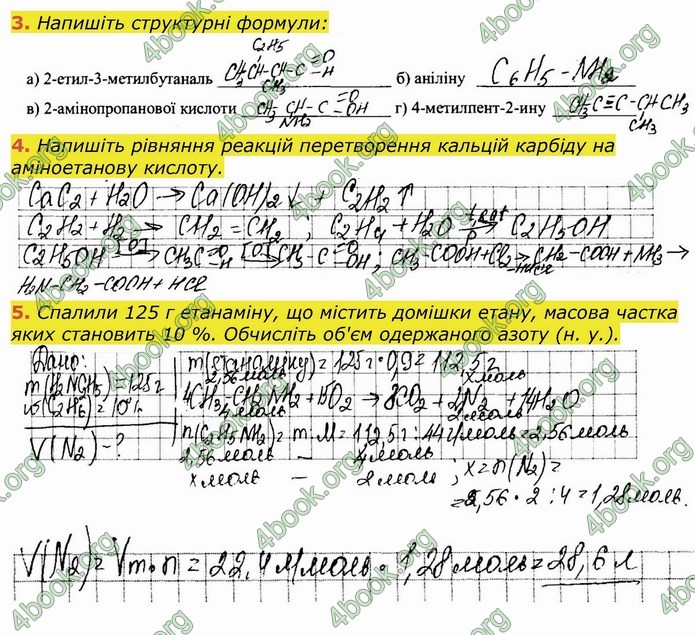 3. Напишіть структурні формули:
а) 2-етил-3-метилбутаналь CH3 CH-CH-C=O H C2H5 CH3 б) аніліну C6H5-NH2
в) 2-амінопропанової кислоти CH3 CH-C=O OH NH2 г) 4-метилпент-2-ину CH3C≡C-CHCH3 CH3
4. Напишіть рівняння реакцій перетворення кальцій карбіду на
аміноетанову кислоту.
CaC2 + H2O → Ca(OH)2↓ + C2H2↑
C2H2 + H2 → CH2 = CH2 ; C2H4 + H2O → C2H5OH
C2H5OH [O]→ CH3C=O H [O]→ CH3-C=O OH ; CH3-COOH + Cl2 → CH2-COOH + NH3 →
H2N-CH2-COOH + HCl
5. Спалили 125 г етанаміну, що містить домішки етану, масова частка
яких становить 10 %. Обчисліть об'єм одержаного азоту (н. у.).
Дано: m(етанаміну) = 125г · 0,9 = 112,5г
2,56моль xмоль
4CH3-CH2NH2 + 15O2 → 8CO2 + 2N2 + 14H2O
4моль 2моль
w(C2H6) = 10%
V(N2) - ? n(C2H5NH2) = m:M = 112,5г : 44г/моль = 2,56моль
2,56моль - 4моль
xмоль - 2моль ; x = n(N2) =
= 2,56 · 2 : 4 = 1,28моль.
V(N2) = Vm·n = 22,4л/моль · 1,28моль = 28,6л
4book.org